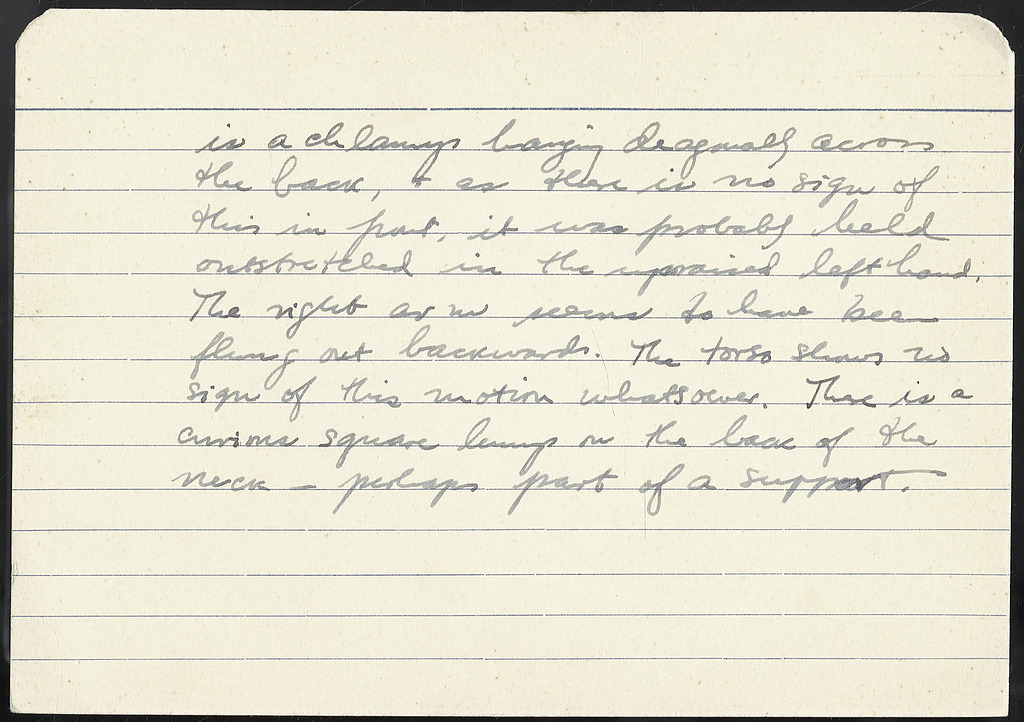 is a chlamys hanging diagonally across
the back, + as there is no sign of
this in front, it was probably held
outstretched in the upraised left hand.
The right arm seems to have been
flung out backwards. The torso shows no
sign of this motion whatsoever. There is a
curious square lump on the back of the
neck – perhaps part of a support.